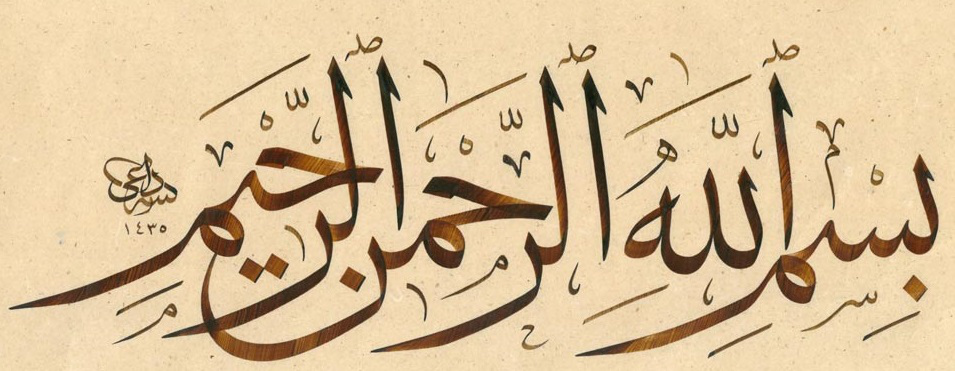 بِسْمِ اللَّهِ الرَّحْمَٰنِ الرَّحِيمِ
١٤٣٥